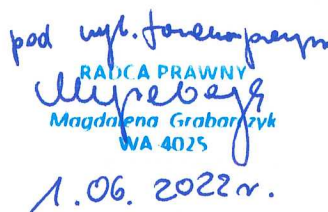 pod wzgl. formalnoprawnym
RADCA PRAWNY
Magdalena Grabarczyk
WA 4025
1.06.2022r.